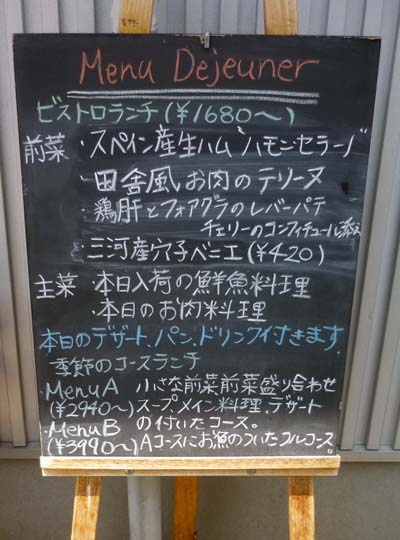 Menu Dejeuner
ビストロランチ(¥1680〜)
前菜・スペイン産生ハム“ハモンセラーノ”
・田舎風お肉のテリーヌ
・鶏肝とフォアグラのレバーパテ
チェリーのコンフィチュール添え
三河産穴子ベニエ(¥420)
主菜・本日入荷の鮮魚料理
・本日のお肉料理
本日のデザート、パン、ドリンク付きます。
季節のコースランチ
・Menu A 小さな前菜前菜盛り合わせ
(¥2940〜)スープ、メイン料理、デザート
・Menu B の付いたコース。
(¥3990〜)Aコースにお魚のついたフルコース。